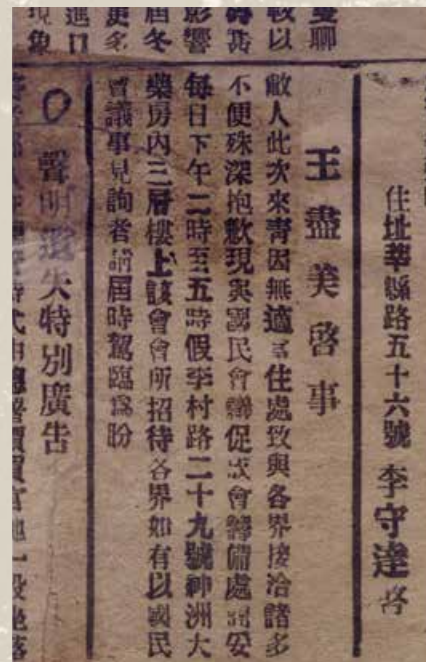 住址莘縣路五十六號 李守達 啓
王盡美啓事
敝人此次來青因無適當住處致與各界接洽諸多
不便殊深抱歉現與國民會議促成會籌備處商妥
每日下午二時至五時假李村路二十九號神洲大
藥房內三層樓上該會會所招待各界如有以國民
會議事見詢者請屆時駕臨爲盼
雙聊
較以
影響
屆冬
更多
進口
現象
聲明遺失特別廣告